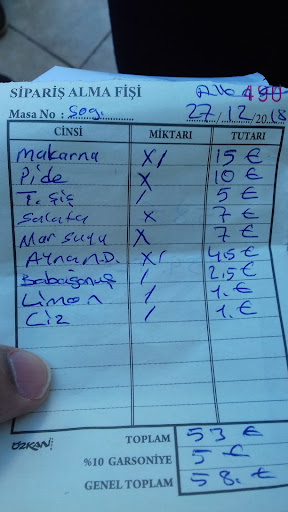 SİPARİŞ ALMA FİŞİ 490
Masa No : 27/12/2018
CİNSİ MİKTARI TUTARI
Makarna X/ 15 €
Pide X 10 €
T. Şiş / 5 €
Salata X 7 €
Mar suyu X 7 €
Ayran D. X/ 4,5 €
Babagonuş / 2,5 €
Limon / 1. €
Ciz / 1. €
ÖZKAN TOPLAM 53 €
%10 GARSONİYE 5 €
GENEL TOPLAM 58. €